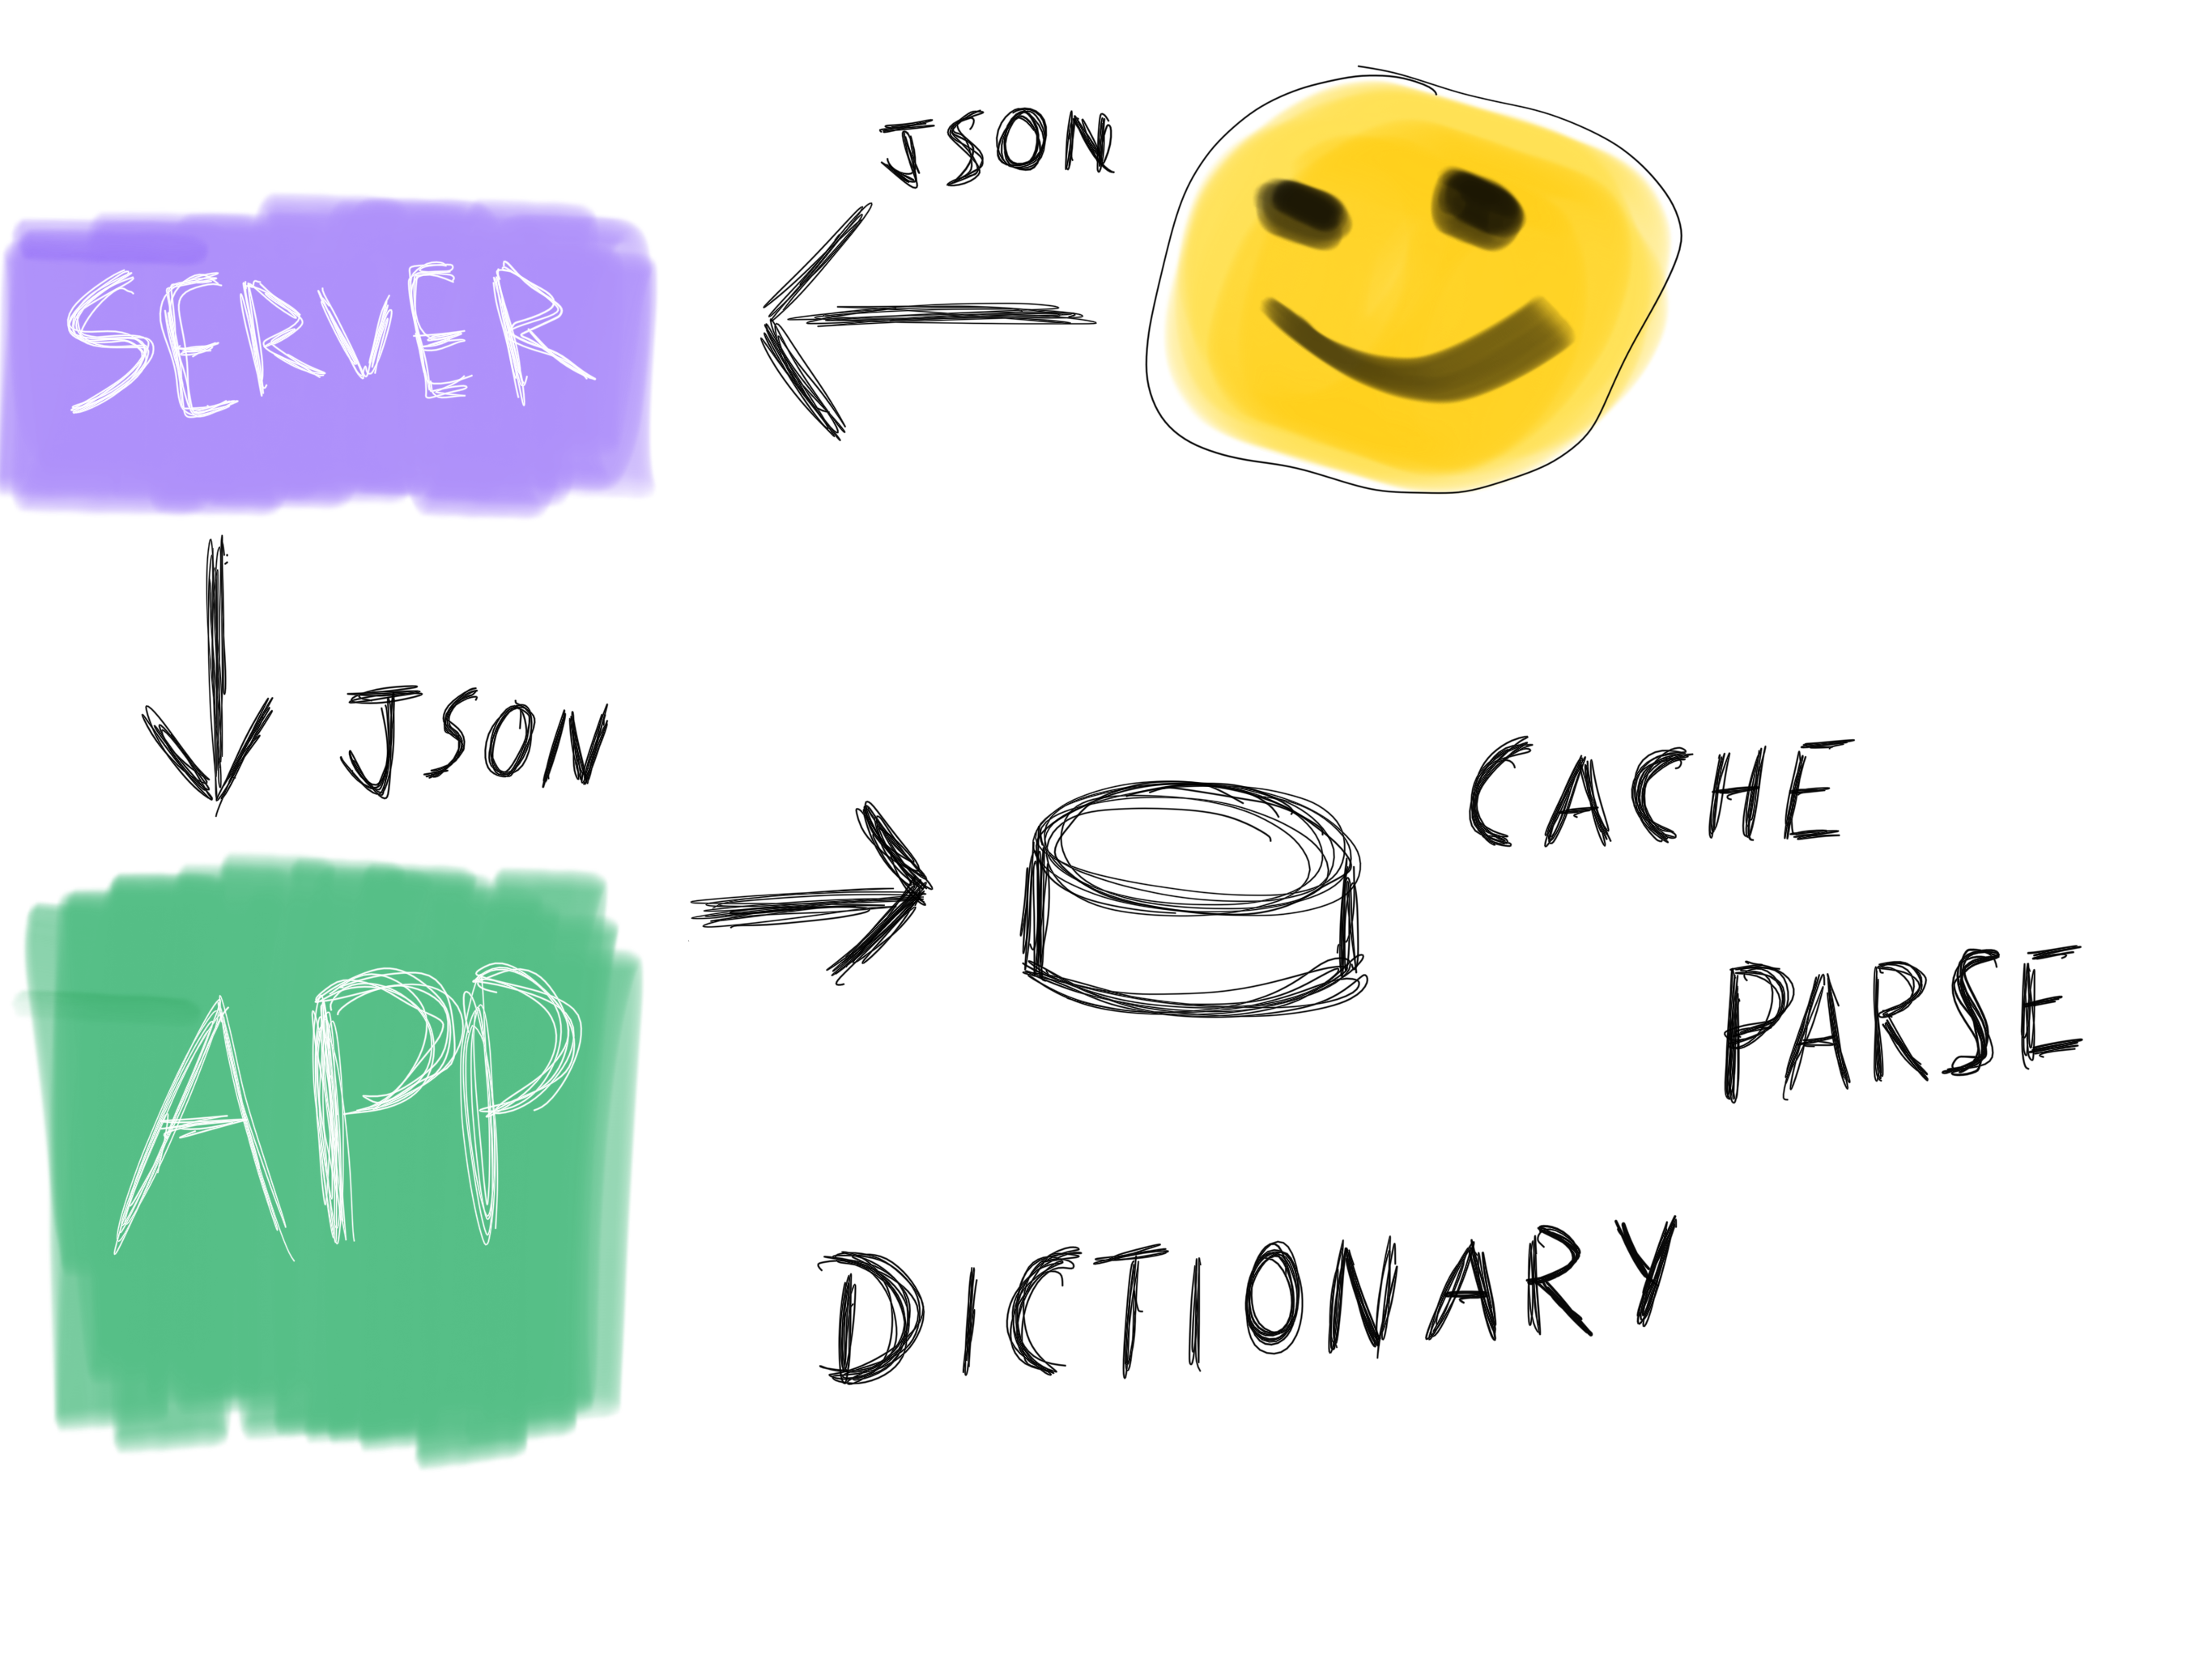 JSON
SERVER
JSON
CACHE
PARSE
APP
DICTIONARY